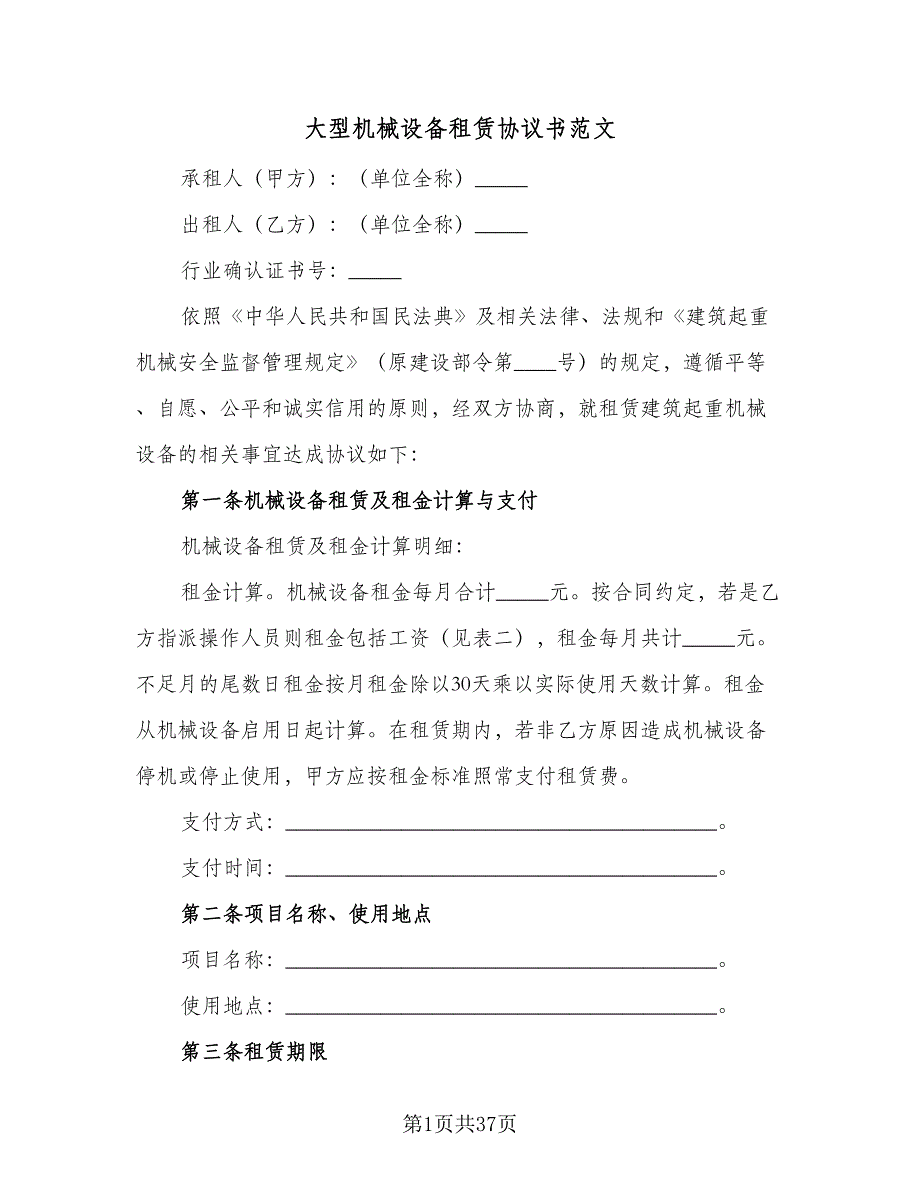 大型机械设备租赁协议书范文
承租人（甲方）：（单位全称）_____
出租人（乙方）：（单位全称）_____
行业确认证书号：_____
依照《中华人民共和国民法典》及相关法律、法规和《建筑起重
机械安全监督管理规定》（原建设部令第____号）的规定，遵循平等
、自愿、公平和诚实信用的原则，经双方协商，就租赁建筑起重机械
设备的相关事宜达成协议如下：
第一条机械设备租赁及租金计算与支付
机械设备租赁及租金计算明细：
租金计算。机械设备租金每月合计_____元。按合同约定，若是乙
方指派操作人员则租金包括工资（见表二），租金每月共计_____元。
不足月的尾数日租金按月租金除以30天乘以实际使用天数计算。租金
从机械设备启用日起计算。在租赁期内，若非乙方原因造成机械设备
停机或停止使用，甲方应按租金标准照常支付租赁费。
支付方式：_________________________________________。
支付时间：_________________________________________。
第二条项目名称、使用地点
项目名称：_________________________________________。
使用地点：_________________________________________。
第三条租赁期限
第1页共37页